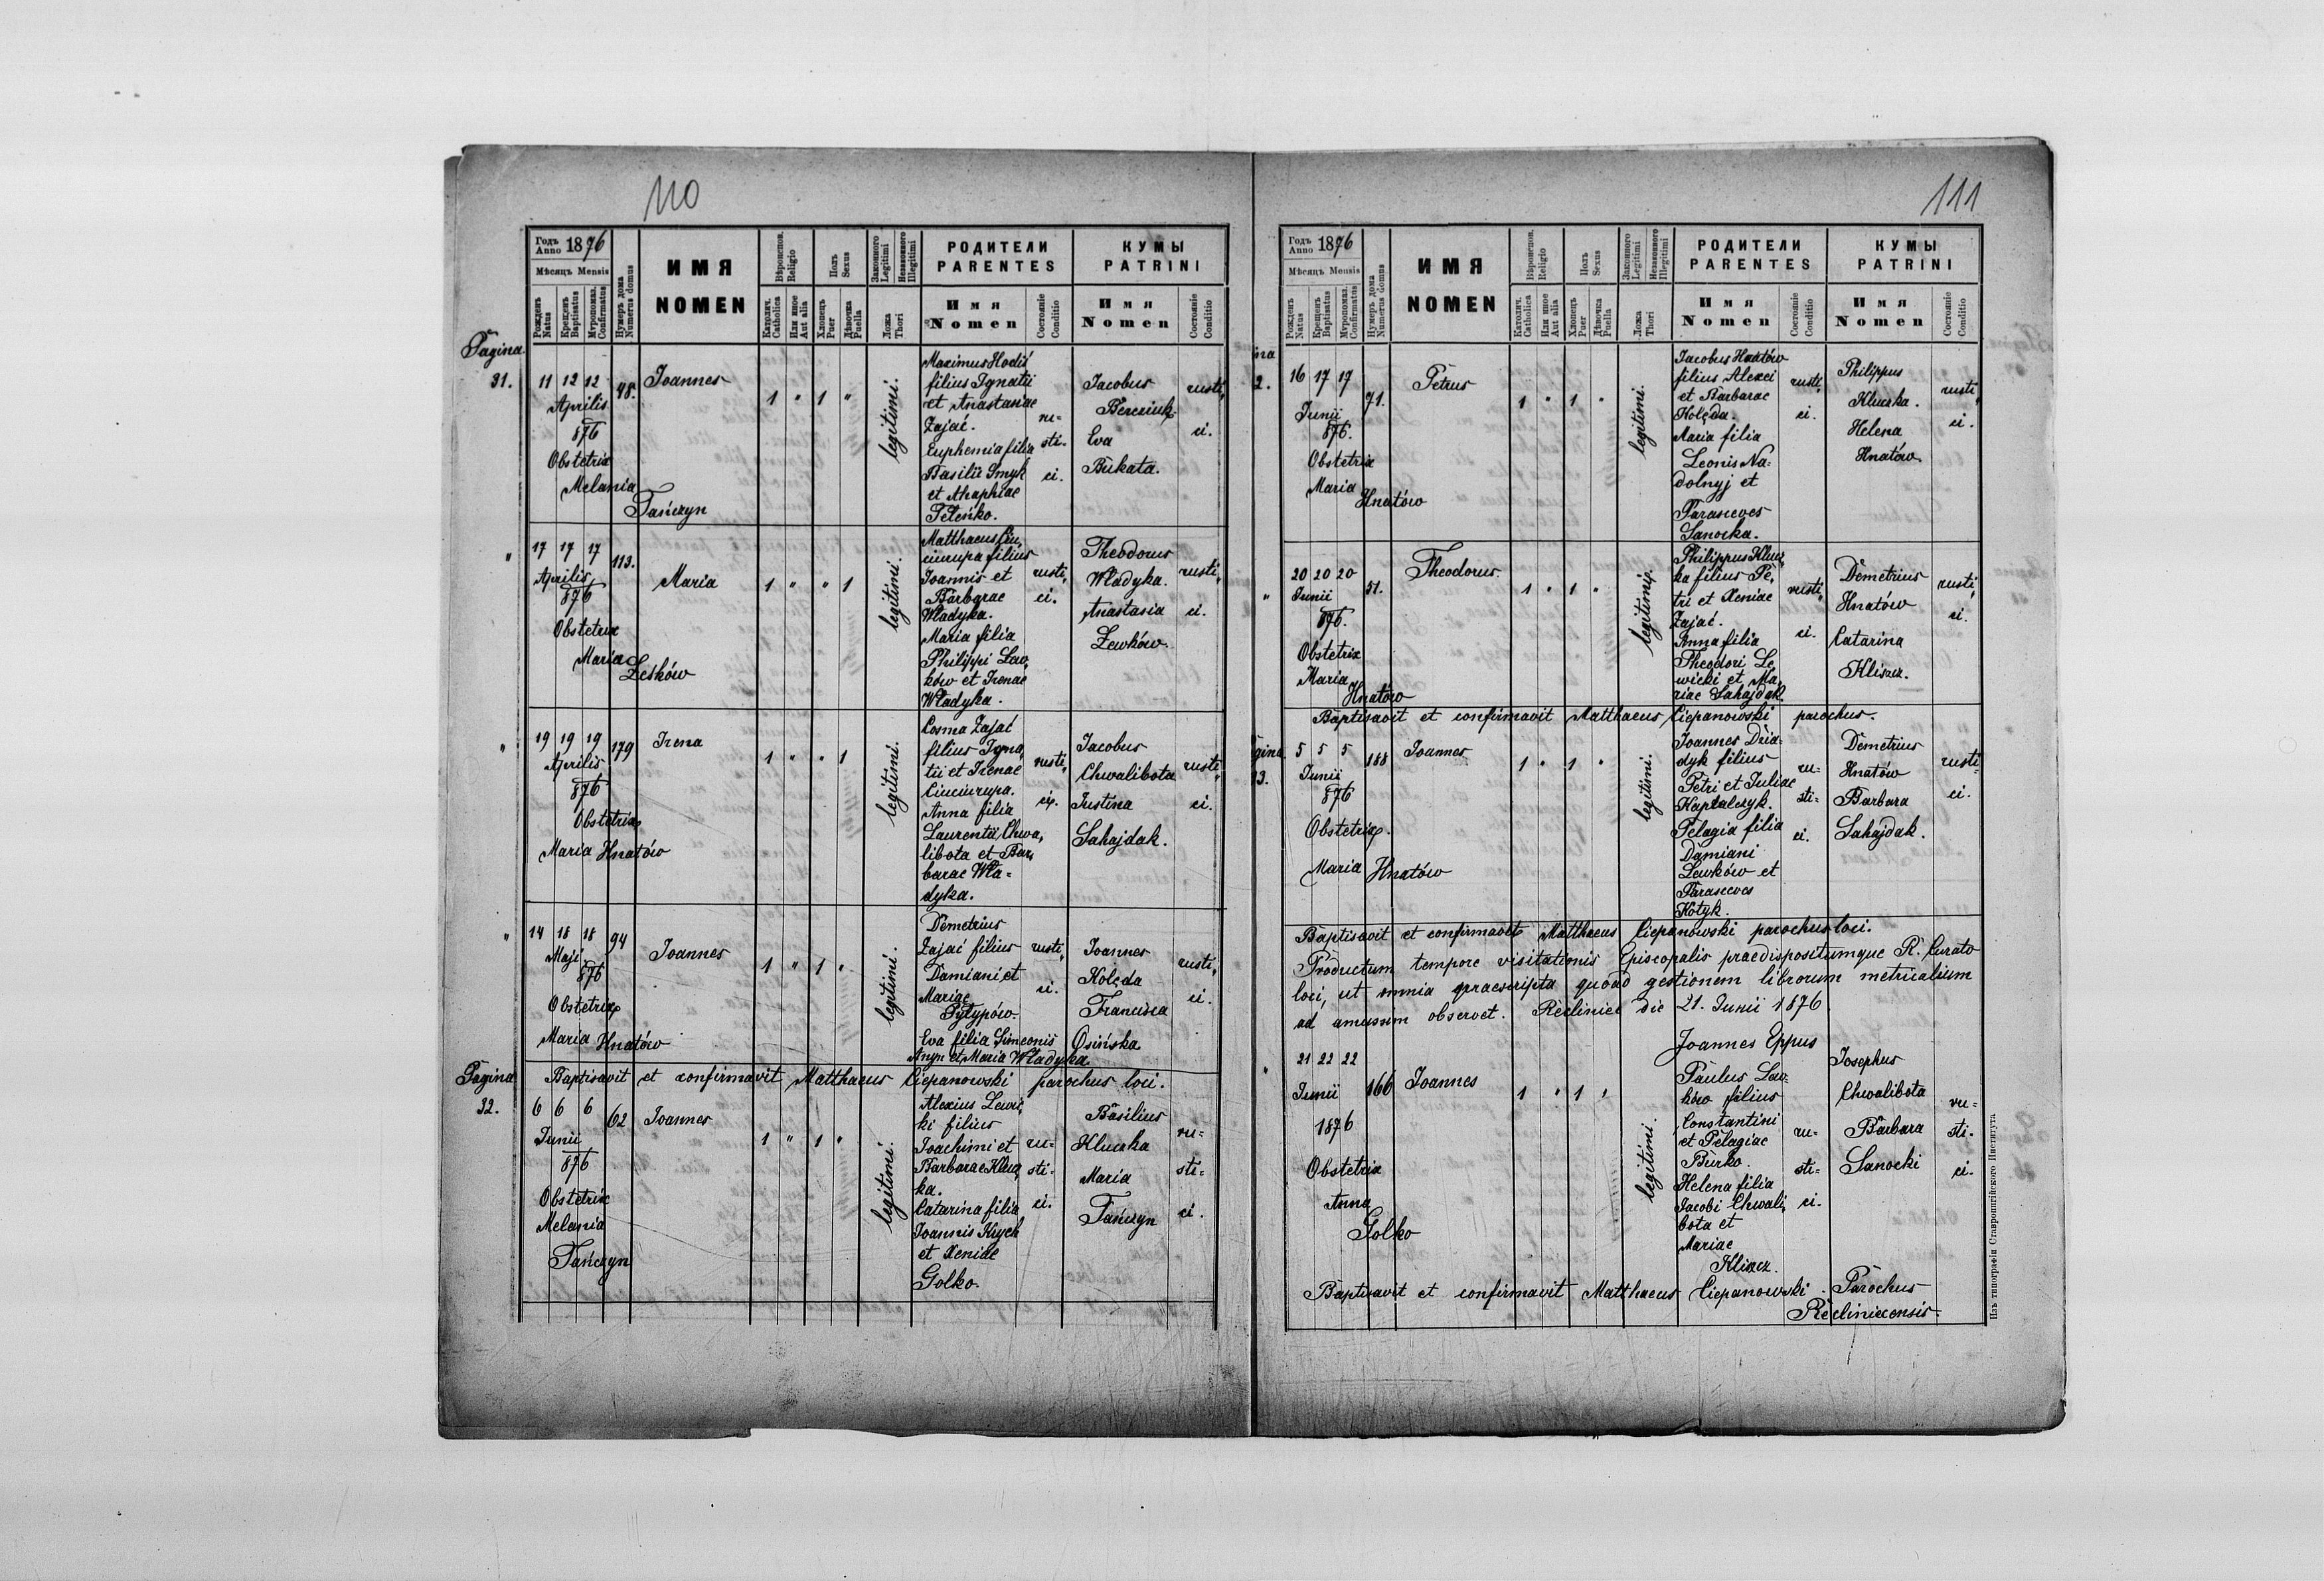 110
Годъ Anno 1876
Мѣсяцъ Mensis
Рожденъ Natus
Крещенъ Baptisatus
Мνропомаз. Confirmatus
Нумеръ дома Numerus domus
ИМЯ
NOMEN
Вѣроиспов. Religio
Католич. Catholica
Или иное Aut alia
Полъ Sexus
Хлопецъ Puer
Дѣвочка Puella
Законного Legitimi
Незаконного Illegitimi
Ложа Thori
РОДИТЕЛИ
PARENTES
Имя
Nomen
Состояніе Conditio
КУМЫ
PATRINI
Имя
Nomen
Состояніе Conditio
Pagina
31.
11 12 12
Aprilis
876
Obstetrix
Melania
Tańczyn
48.
Joannes
1 " 1 "
legitimi.
Maximus Hodiś
filius Ignatii
et Anastasiae
Zajać.
Euphemia filia
Basilii Smyk
et Ahaphiae
Peleńko.
ru=
sti=
ci.
Jacobus
Bereziuk.
Eva
Bukata.
rusti,,
ci.
"
17 17 17
Aprilis
876
Obstetrix
Maria
Leśków
113.
Maria
1 " " 1
legitimi.
Matthaeus Ciu,,
ciurupa filius
Joannis et
Barbarae
Władyka.
Maria filia
Philippi Lew,,
ków et Irenae
Władyka.
rusti,,
ci.
Theodorus
Władyka.
Anastasia
Lewków.
rusti,,
ci.
"
19 19 19
Aprilis
876
Obstetrix
Maria Hnatów
179
Irena
1 " " 1
legitimi.
Cosma Zajać
filius Igna,,
tii et Irenae
Ciuciurupa.
Anna filia
Laurentii Chwa,,
libota et Bar,,
barae Wła=
dyka.
rusti,,
ci.
Jacobus
Chwalibota
Justina
Sahajdak.
rusti,,
ci.
"
14 18 18
Maji
876
Obstetrix
Maria Hnatów
94
Joannes
1 " 1 "
legitimi.
Demetrius
Zajać filius
Damiani et
Mariae
Pyłypów.
Eva filia Simeonis
Anyn et Maria Władyka
rusti,,
ci.
Joannes
Kolęda
Francisca
Osińska
rusti,,
ci.
Pagina
32.
Baptisavit et confirmavit Matthaeus Ciepanowski parochus loci.
6 6 6
Junii
876
Obstetrix
Melania
Tańczyn
62
Joannes
1 " 1 "
legitimi.
Alexius Lewic,,
ki filius
Joachimi et
Barbarae Klucz,,
ka.
Catarina filia
Joannis Kuych
et Xeniae
Golko.
ru=
sti=
ci.
Basilius
Kluczka
Maria
Tańczyn
ru=
sti=
ci.
111
Годъ Anno 1876
Мѣсяцъ Mensis
Рожденъ Natus
Крещенъ Baptisatus
Мνропомаз. Confirmatus
Нумеръ дома Numerus domus
ИМЯ
NOMEN
Вѣроиспов. Religio
Католич. Catholica
Или иное Aut alia
Полъ Sexus
Хлопецъ Puer
Дѣвочка Puella
Законного Legitimi
Незаконного Illegitimi
Ложа Thori
РОДИТЕЛИ
PARENTES
Имя
Nomen
Состояніе Conditio
КУМЫ
PATRINI
Имя
Nomen
Состояніе Conditio
ina
2.
16 17 17
Junii
876.
Obstetrix
Maria
Hnatów
71.
Petrus
1 " 1 "
legitimi.
Jacobus Hnatów
filius Alexei
et Barbarae
Kolęda.
Maria filia
Leonis Na=
dolnyj et
Parasceves
Sanocka.
rusti,,
ci.
Philippus
Kluczka.
Helena
Hnatów.
rusti,,
ci.
"
20 20 20
Junii
876.
Obstetrix
Maria
Hnatów
51.
Theodorus.
1 " 1 "
legitimi.
Philippus Klucz,,
ka filius Pe,,
tri et Xeniae
Zajać.
Anna filia
Theodori Le,,
wicki et Ma,,
riae Sahajdak.
rusti,,
ci.
Demetrius
Hnatów
Catarina
Kliszcz.
rusti,,
ci.
Baptisavit et confirmavit Matthaeus Ciepanowski parochus.
gina
33.
5 5 5
Junii
876
Obstetrix.
Maria Hnatów
188
Joannes
1 " 1 "
legitimi.
Joannes Dzia=
dyk filius
Petri et Juliae
Kaptalczyk.
Pelagia filia
Damiani
Lewków et
Parasceves
Kotyk.
ru=
sti=
ci.
Demetrius
Hnatów
Barbara
Sahajdak.
rusti=
ci.
Baptisavit et confirmavit Matthaeus Ciepanowski parochus loci.
Productum tempore visitationis Episcopalis praedispositumque R. Curato
loci, ut omnia praescripta quoad gestionem librorum metricalium
ad amussim observet. Recliniec die 21. Junii 1876
Joannes Eppus
"
21 22 22
Junii
1876
Obstetrix
Anna
Golko
166
Joannes
1 " 1 "
legitimi.
Paulus Lew=
ków filius
Constantini
et Pelagiae
Burko.
Helena filia
Jacobi Chwali,,
bota et
Mariae
Kliszcz.
ru=
sti=
ci.
Josephus
Chwalibota
Barbara
Sanocki
ru=
sti=
ci.
Baptisavit et confirmavit Matthaeus Ciepanowski Parochus
Recliniecensis.
Изъ типографіи Ставропигійского Института